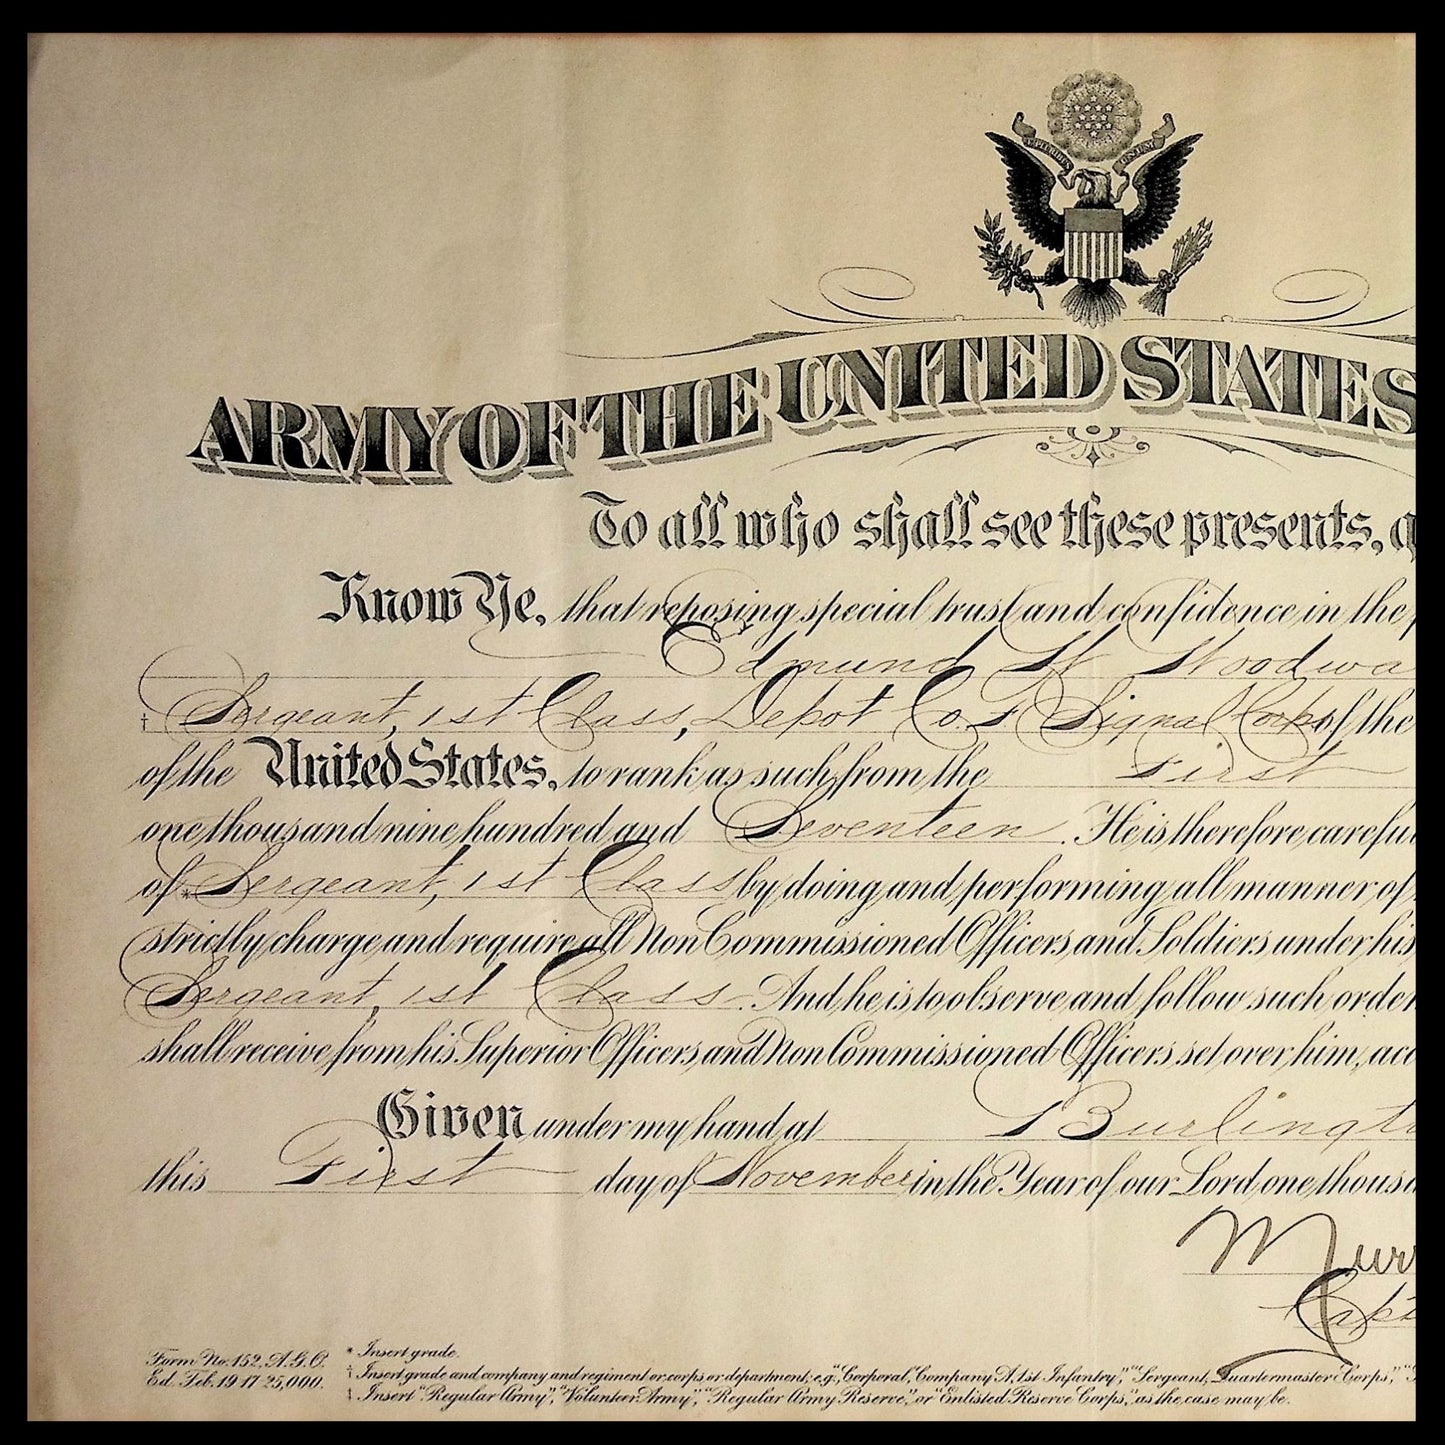 E PLURIBUS UNUM
ARMY OF THE UNITED STATES
To all who shall see these presents,
Know Ye, that reposing special trust and confidence in the
Edmund W Woodwa
† Sergeant, 1st Class, Depot Co. F Signal Corps of the
of the United States, to rank as such from the First
one thousand nine hundred and Seventeen. He is therefore careful
of * Sergeant, 1st Class by doing and performing all manner of
strictly charge and require all Non Commissioned Officers and Soldiers under his
Sergeant, 1st Class. And he is to observe and follow such order
shall receive from his Superior Officers and Non Commissioned Officers set over him, acc
Given under my hand at Burlingto
this First day of November in the Year of our Lord one thousa
Murr
Capt
Form No. 152, A.G.O.
Ed. Feb. 19-17 25,000.
* Insert grade.
† Insert grade and company and regiment or corps or department; e.g., "Corporal, Company A, 1st Infantry," "Sergeant, Quartermaster Corps,"
‡ Insert "Regular Army", "Volunteer Army," "Regular Army Reserve", or "Enlisted Reserve Corps," as the case may be.